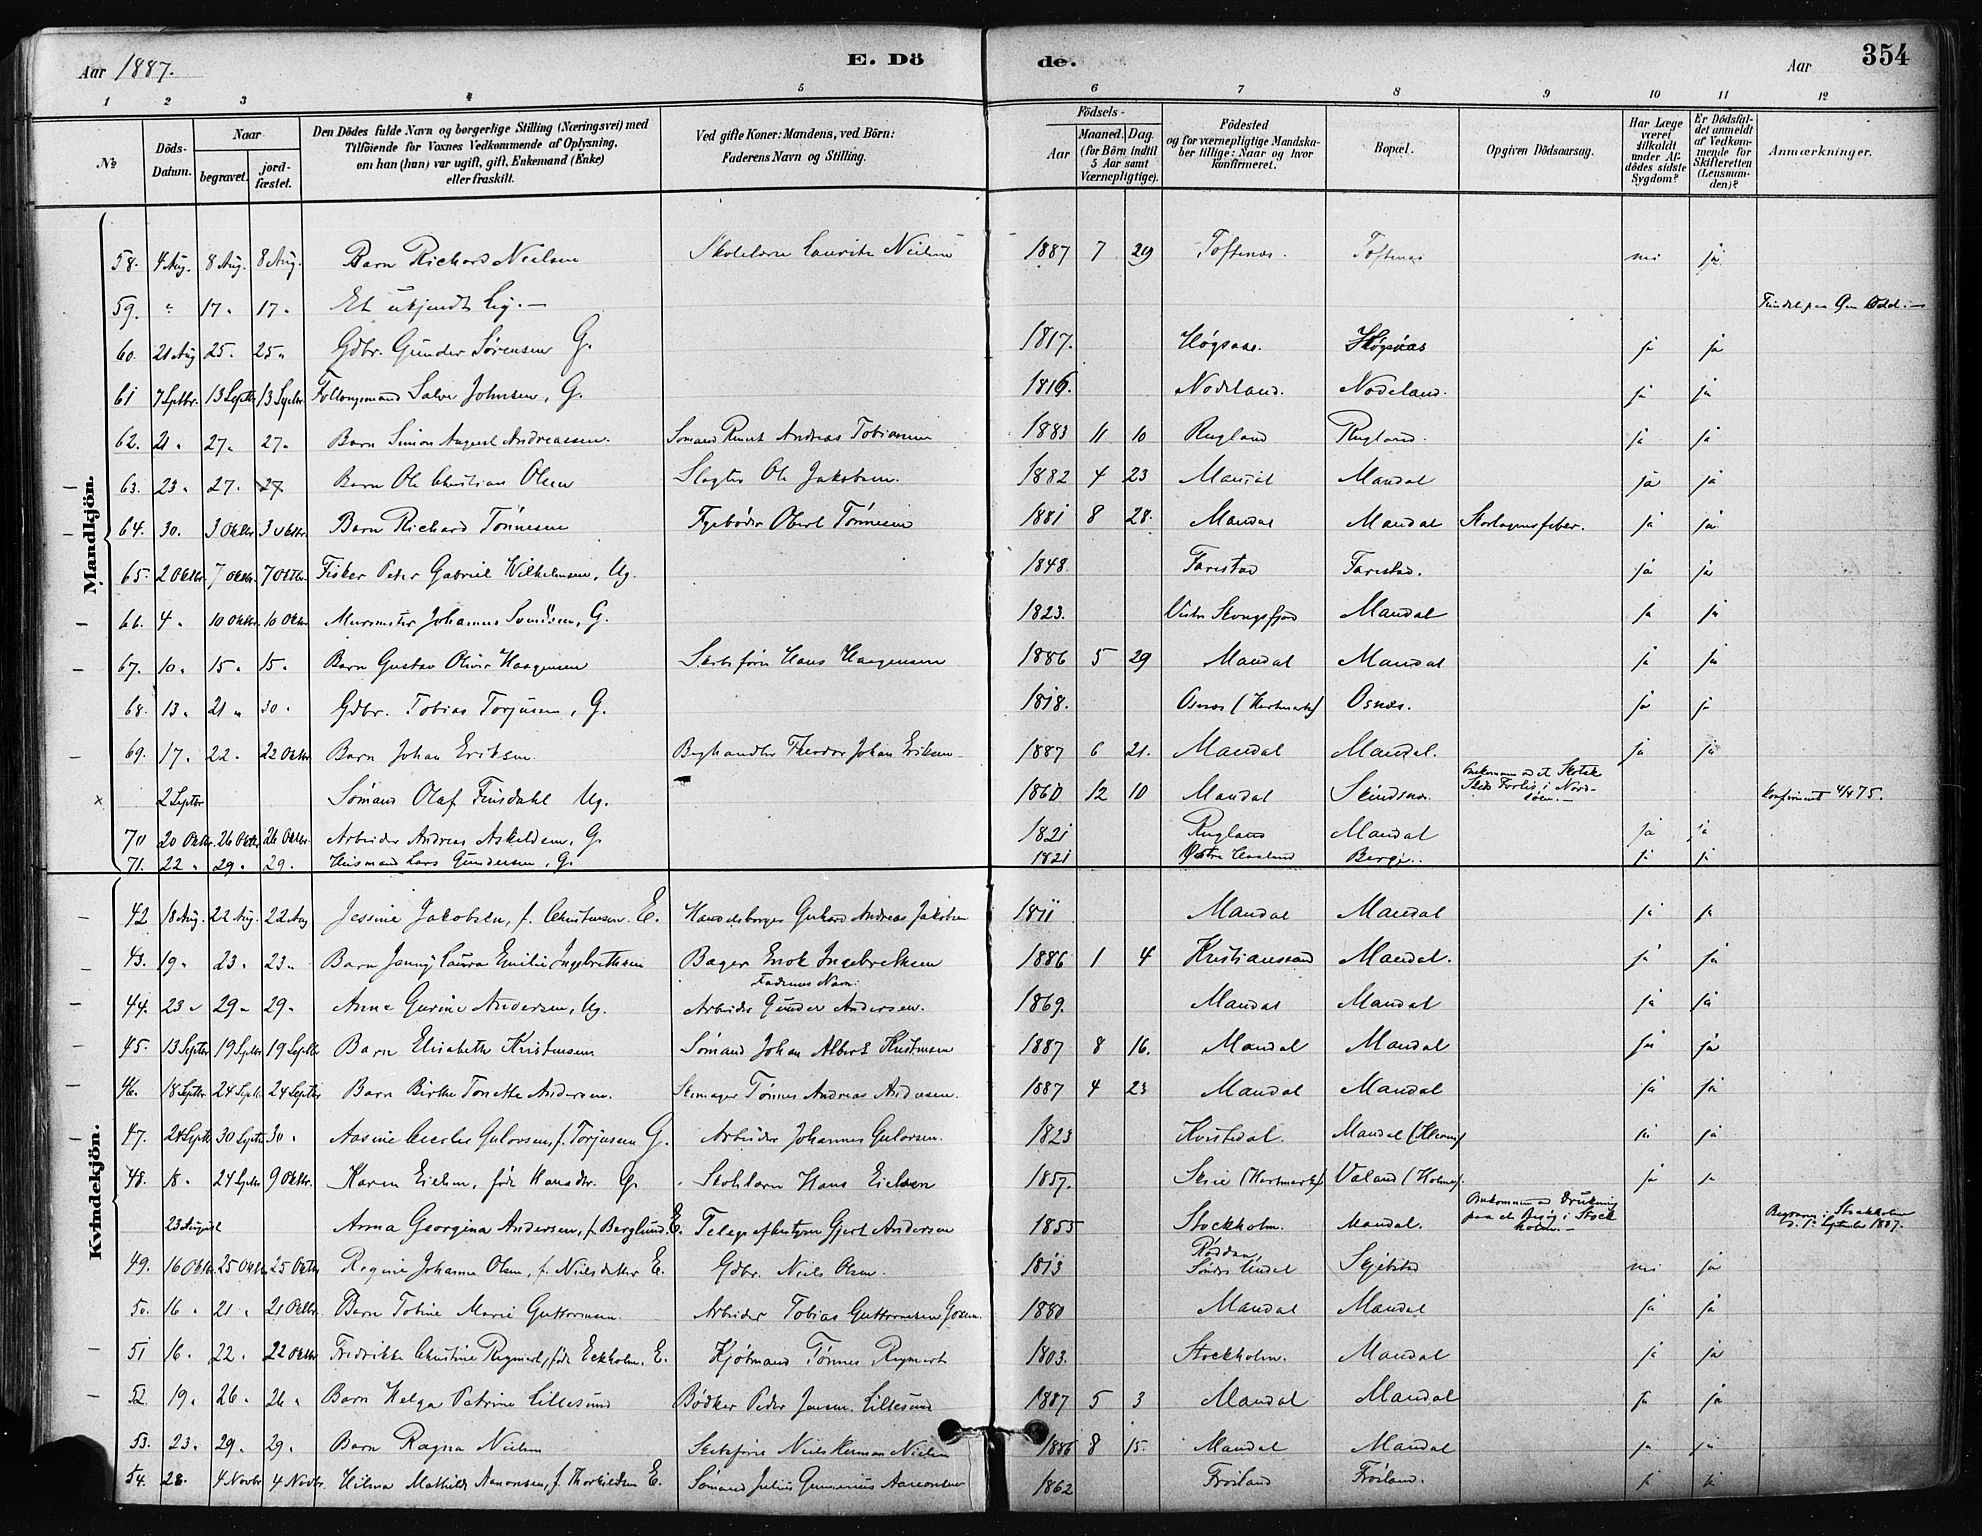 Aar 1887. E. Dö de. Aar 354
1 2 3 4 5 6 7 8 9 10 11 12
№
Döds-Datum.
Naar begravet. jordfæstet.
Den Dödes fulde Navn og borgerlige Stilling (Næringsvei) med
Tilföiende for Voxnes Vedkommende af Oplysning,
om han (hun) var ugift, gift, Enkemand (Enke)
eller fraskilt.
Ved gifte Koner: Mandens, ved Börn:
Faderens Navn og Stilling.
Födsels-
Aar Maaned. Dag.
(for Börn indtil 5 Aar samt Værnepligtige).
Födested
og for værnepligtige Mandskaber tillige: Naar og hvor konfirmeret.
Bopæl.
Opgiven Dödsaarsag.
Har Læge været tilkaldt under Afdödes sidste Sygdom?
Er Dödsfaldet anmeldt af Vedkommende for Skifteretten (Lensmanden)?
Anmærkninger.
Mandkjön.
58. 4 Aug. 8 Aug. 8 Aug. Barn Richard Nielsen Skolelærer Lauritz Nielsen 1887 7 29 Toftenæs. Toftenæs nei ja
59. " 17 " 17 " Et ukjendt Lig. —
60. 21 Aug 25. 25 " Gdbr. Gunder Sørensen G. 1817. Høgsaas. Høgsaas ja ja
61 7 Septbr. 13 Septbr 13 Septbr Salve Johnsen, G. 1816. Nodeland. Nodeland. ja ja
62. 21 " 27 " 27 " Barn Simon August Andreassen. Sømand Andreas Tobiassen 1883 11 10 Rugland Rugland. ja ja
63. 23 " 27 " 27 Barn Ole Christian Olsen Slagter Ole Jakobsen. 1882 4 23 Mandal Mandal ja ja
64. 30. 3 Oktbr 3 Oktbr. Barn Richard Tönnesen Fyrbøder Obert Tönnesen 1881 8 28. Mandal Mandal Skarlagensfeber. ja ja
65. 2 Oktbr. 7 Oktbr. 7 Oktbr. Fisker Peter Gabriel Wilhelmsen, Ug. 1848. Farestad Farestad. ja ja
66. 4 " 10 Oktbr. 10 Oktbr Murmester Johannes Svendsen, G. 1823. Mandal ja ja
67. 10 " 15 " 15 " Barn Gustav Oliver Haagensen Skibsfører Hans Haagensen 1886 5 29 Mandal Mandal ja ja
68. 13 " 21 " 30 " Gdbr. Tobias Torjusen, G. 1818. Osnæs (Hartmark) Osnæs. ja ja
69. 17. 22. 22 Oktbr. Barn Johan Eriksen. Boghandler Theodor Johan Eriksen 1887 6 21. Mandal Mandal. ja ja
× 2 Septbr Sømand Olaf Finsdahl Ug. 1860 12 10 Mandal Skindsnæs. Omkommen ved et Skotsk Skibs Forlis i Nordsøen. — Konfirmeret 4/4 75.
70 20 Oktbr. 26 Oktbr. 26 Oktbr. Arbeider Andreas Askeldsen, G. 1821 Rugland Mandal ja ja
71. 22 " 29 " 29 " Husmand Lars Gundersen, G. 1821 Østre Berge. ja ja
Kvindekjön.
42 18 Aug. 22 Aug. 22 Aug Jessine Jakobsen, f. Christensen. E. Handelsborger Gerhard Andreas Jakobsen 1811 Mandal Mandal ja ja
43. 19 " 23 " 23 " Barn Janny Laura Emilie Ingebrethsen Bager Enok Ingebrethsen 1886 1 4 Kristianssand Mandal. ja ja
Faderens Navn:
44. 23 " 29 " 29 " Anne Gurine Andersen, Ug. Arbeider Gunder Andersen. 1869. Mandal Mandal ja ja
45. 13 Septbr 19 Septbr 19 Septbr Barn Elisabeth Kristensen Sømand Johan Albert Kristensen 1887 8 16. Mandal Mandal ja ja
46. 18 Septbr 24 Septb. 24 Septbr Barn Birthe Tonette Andersen. Skomager Tönnes Andreas Andersen. 1887 4 23 Mandal Mandal ja ja
47. 24 Septb 30 Septb 30 " Aasine Cecilie Gulovsen, f. Torjusen G. Arbeider Johannes Gulovsen. 1823 Mandal ja ja
48. 18 " 24 Septbr 9 Oktbr. Karen Eielsen, født Hansdtr. G. Skolelærer Hans Eielsen 1857. (Hartmark) Valand (Holme). ja ja
23 August Anna Georgina Andersen, f. Berglund. E. Telegrafbestyrer Gjert Andersen 1855 Stockholm. Mandal. Omkommen ved Drukning paa et Besøg i Stockholm. — Begraven i Stockholm d. 1 September 1887.
49. 16 Oktbr. 25 Oktbr 25 Oktbr Regine Johanne Olsen, f. Nielsdatter E. Gdbr. Niels Olsen. 1813 Søndre Undal Skjebstad nei ja
50. 16 " 21 " 21 Oktbr. Barn Tobine Marie Guttormsen. Arbeider Tobias Guttormsen 1880 Mandal Mandal ja ja
51 16 " 22 " 22 Oktbr Fredrikke Christine Reymert, født Eckholm. E. Kjøbmand Tönnes Reymert 1803. Stockholm. Mandal ja ja
52. 19 " 26 " 26 " Barn Helga Petrine Lillesund Bødker Peder Jensen Lillesund 1887 5 3 Mandal Mandal ja ja
53. 23 " 29 " 29 " Barn Ragna Nielsen Skibsfører Niels Herman Nielsen 1886 8 15 Mandal Mandal ja ja
54. 28 " 4 Novbr 4 Novbr. Hilma Mathilde Aanonsen, f. Thorkildsen E. Sømand Julius Gunerius Aanonsen 1862 Frøsland Frøsland. ja ja